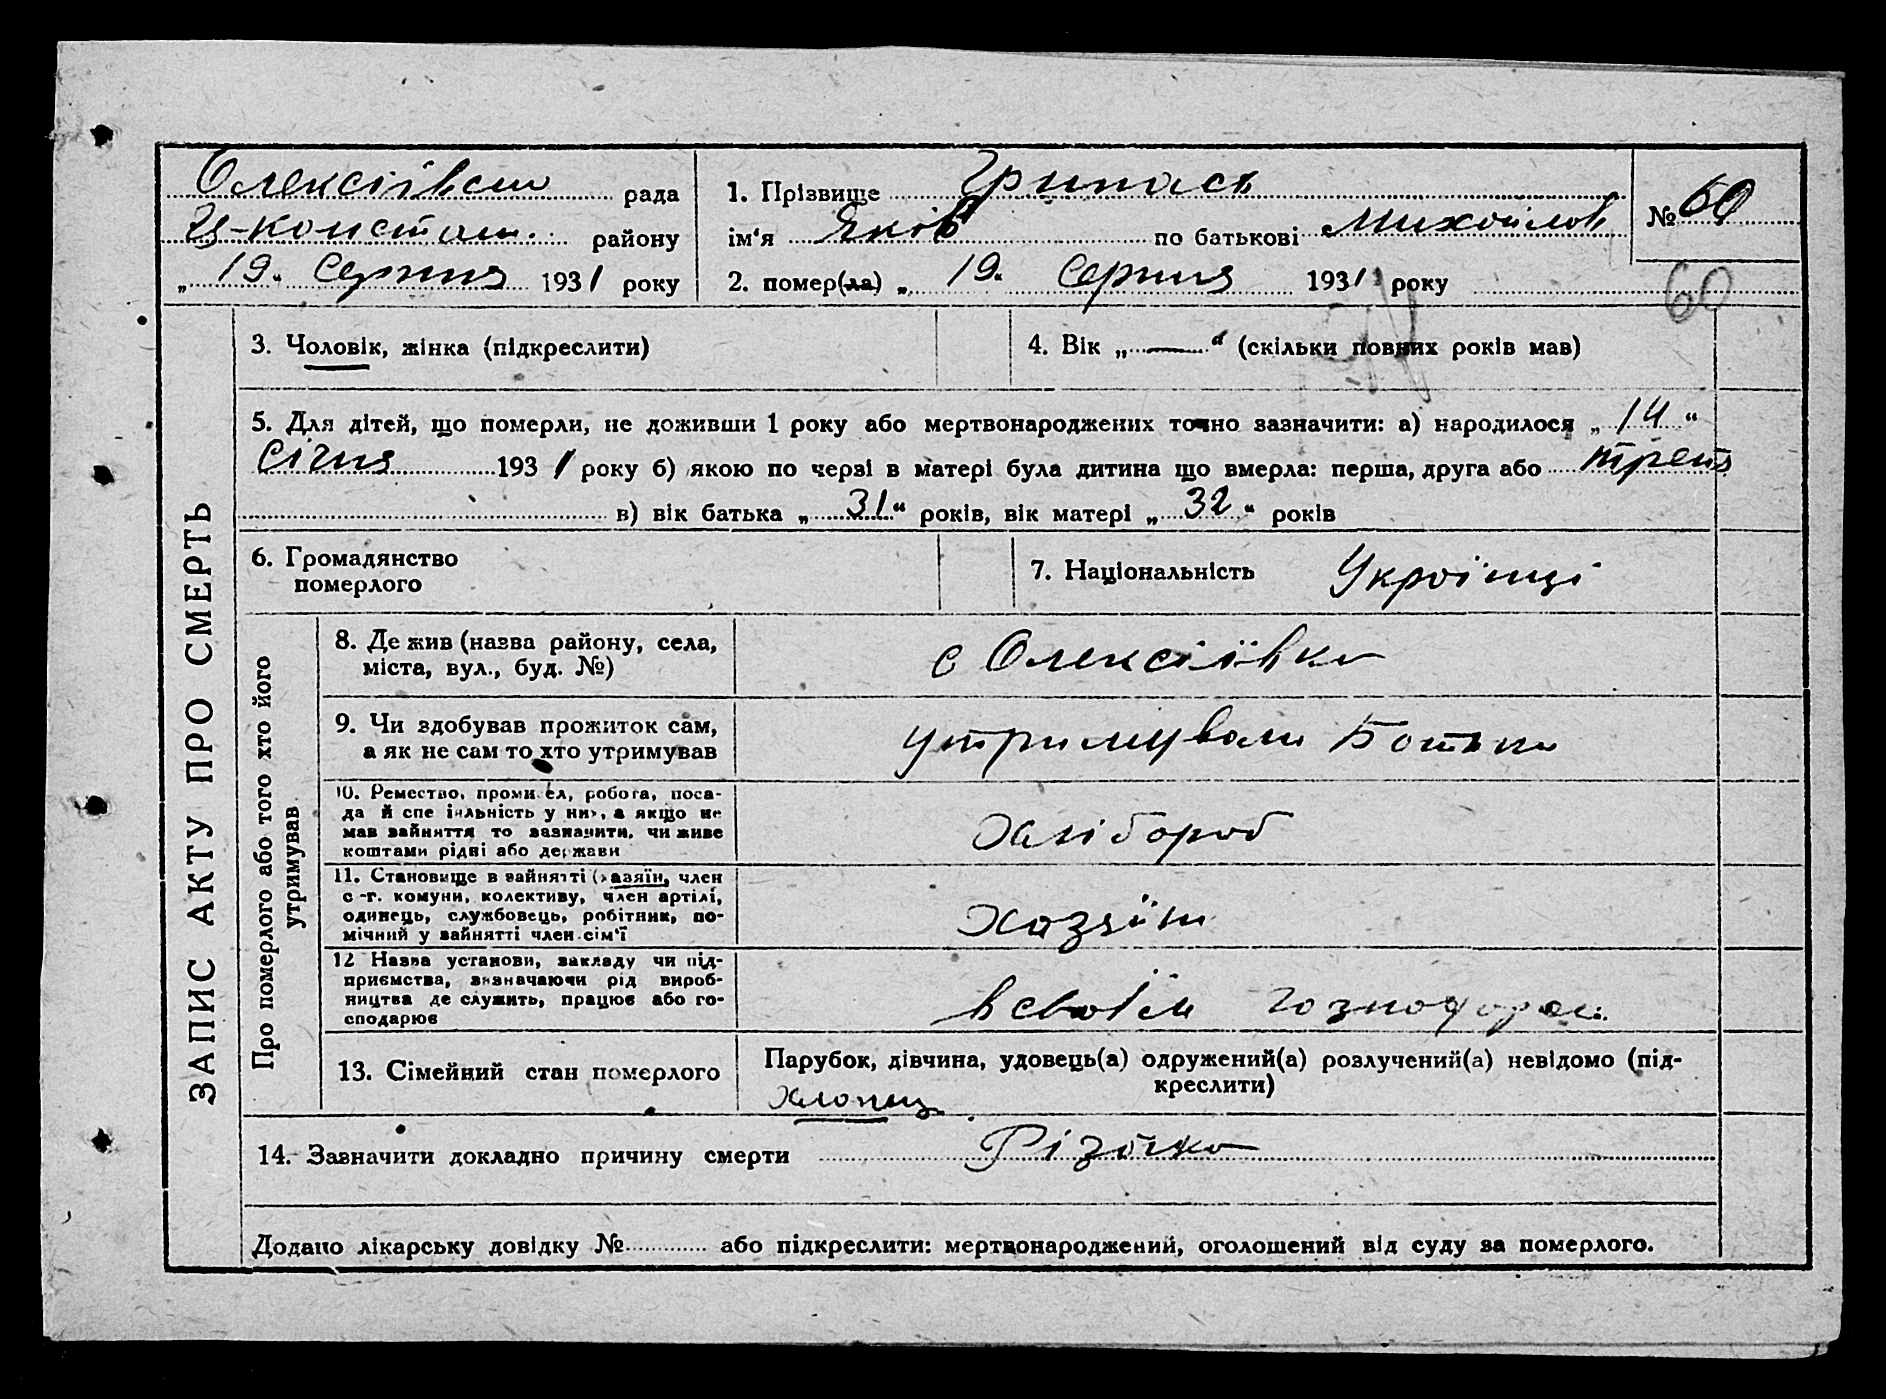 Олексіївсш рада
Ц-констан. району
„ 19. Серпня 1931 року
1. Прізвище Грипась
ім'я Яків по батькові Михойлов
2. помер(ла) „ 19. Серпня 1931 року
№ 60
60
ЗАПИС АКТУ ПРО СМЕРТЬ
3. Чоловік, жінка (підкреслити)
4. Вік „ — “ (скільки повних років мав)
5. Для дітей, що померли, не доживши 1 року або мертвонароджених точно зазначити: а) народилося „ 14 “
Січня 1931 року б) якою по черзі в матері була дитина що вмерла: перша, друга або третя
в) вік батька „ 31 “ років, вік матері „ 32 “ років
6. Громадянство
померлого
7. Національність Украінці
Про померлого або того хто його
утримував
8. Де жив (назва району, села,
міста, вул., буд. №)
с Олексіївка
9. Чи здобував прожиток сам,
а як не сам то хто утримував
утримували Батьки
10. Ремество, промисел, робота, поса-
да й спеціяльність у них, а якщо не
мав зайняття то зазначити, чи живе
коштами рідні або держави
Хлібороб
11. Становище в зайнятті (хазяїн, член
с-г. комуни, колективу, член артілі,
одинець, службовець, робітник, по-
мічний у зайнятті член сім'ї
Хазяїн
12 Назва установи, закладу чи під-
приємства, визначаючи рід вироб-
ництва де служить, працює або го-
сподарює
в своїм
13. Сімейний стан померлого
Парубок, дівчина, удовець(а) одружений(а) розлучений(а) невідомо (під-
креслити)
Хлопец
14. Зазначити докладно причину смерти Різачка
Додано лікарську довідку № або підкреслити: мертвонароджений, оголошений від суду за померлого.